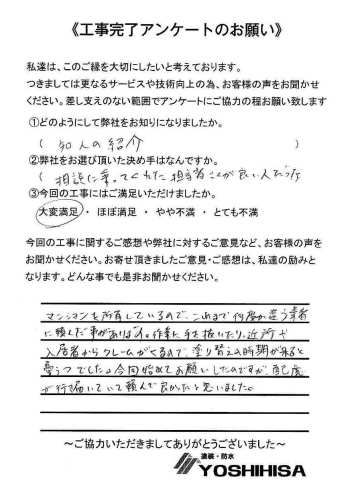 《工事完了アンケートのお願い》
私達は、このご縁を大切にしたいと考えております。
つきましては更なるサービスや技術向上の為、お客様の声をお聞かせ
ください。差し支えのない範囲でアンケートにご協力の程お願い致します
①どのようにして弊社をお知りになりましたか。
( 知人の紹介 )
②弊社をお選び頂いた決め手はなんですか。
( 相談に乗ってくれた担当者 が良い人だった
③今回の工事にはご満足いただけましたか。
大変満足 ・ ほぼ満足 ・ やや不満 ・ とても不満
今回の工事に関するご感想や弊社に対するご意見など、お客様の声を
お聞かせください。お寄せ頂きましたご意見・ご感想は、私達の励みと
なります。どんな事でも是非お聞かせください。
マンションを所有しているので、これまで何度か違う業者
に頼んだ事があります。作業に手を抜いたり、近所や
入居者からクレームがくるので、塗り替えの時期が来ると
憂うつでした。今回始めてお願いしたのですが、気配
が行き届いていて頼んで良かったと思いました。
～ご協力いただきましてありがとうございました～
塗装・防水
YOSHIHISA